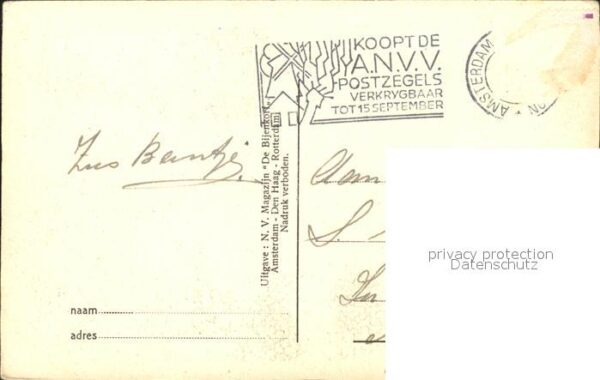 KOOPT DE
A.N.V.V.
POSTZEGELS
VERKRYGBAAR
TOT 15 SEPTEMBER
AMSTERDAM
AMSTERDAM
Zus Bentje
Uitgave : N. V. Magazijn "De Bijenkorf"
Amsterdam - Den Haag - Rotterdam
Nadruk verboden.
Aan
privacy protection
Datenschutz
naam
adres